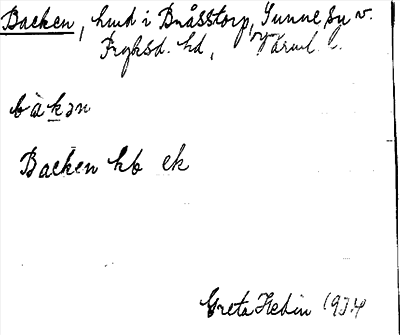 Backen, hmd i Bråsstorp, Sunne sn v.
Fryksd. hd, Värml. l.
bàkən
Backen hb ek
Greta Hedin 1934